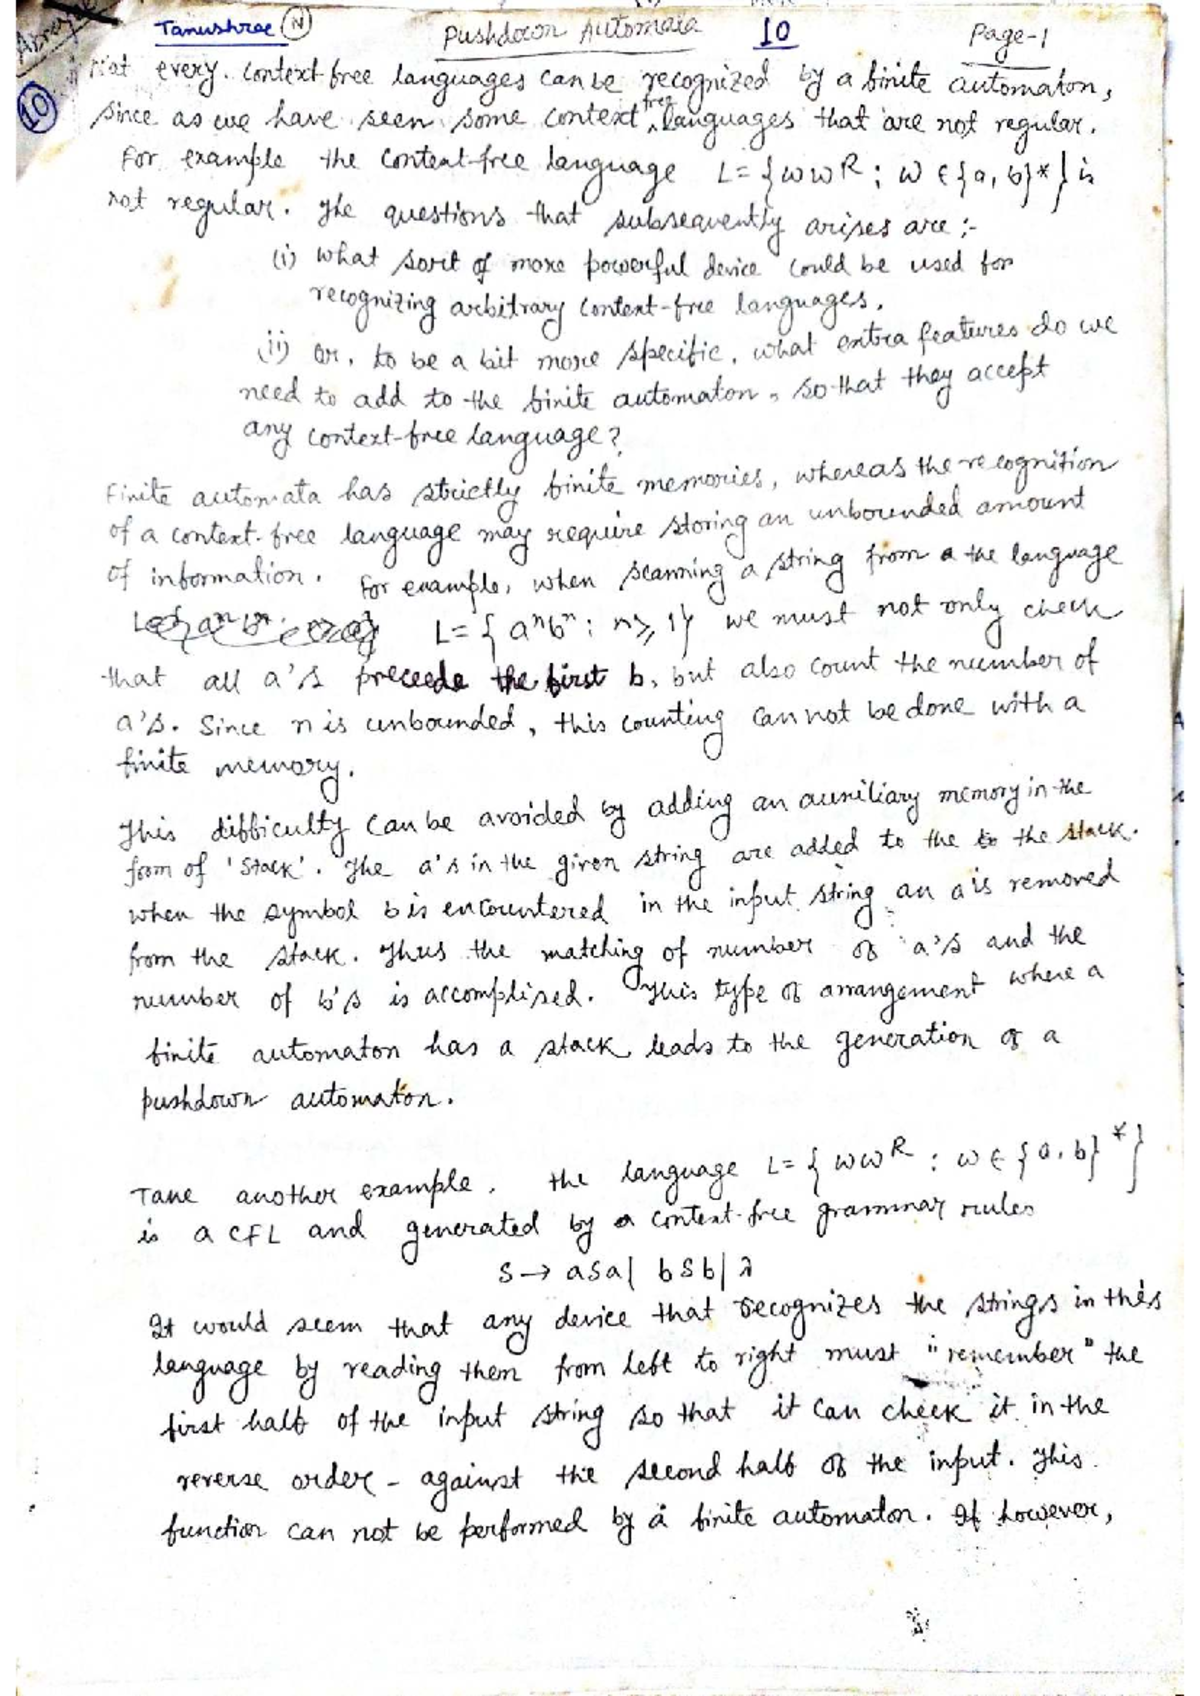 Tanushree (N) Pushdown Automata 10 Page-1
10
Not every context free languages can be recognized by a finite automaton,
since as we have seen some context free languages that are not regular.
For example the context-free language L = {wwR ; w ∈ {a, b}*} is
not regular. The questions that subsequently arises are :-
(i) what sort of more powerful device could be used for
recognizing arbitrary context-free languages.
(ii) or, to be a bit more specific, what extra features do we
need to add to the finite automaton, so that they accept
any context-free language?
Finite automata has strictly finite memories, whereas the recognition
of a context-free language may require storing an unbounded amount
of information. For example, when scanning a string from a the language
L = { aⁿbⁿ : n ≥ 1} we must not only check
that all a's preceede the first b, but also count the number of
a's. Since n is unbounded, this counting can not be done with a
finite memory.
This difficulty can be avoided by adding an auxiliary memory in the
form of 'Stack'. The a's in the given string are added to the to the stack.
when the symbol b is encountered in the input string an a is removed
from the stack. Thus the matching of number of a's and the
number of b's is accomplised. This type of arrangement where a
finite automaton has a stack leads to the generation of a
pushdown automaton.
Take another example, the language L = { wwR : w ∈ {a, b}*}
is a CFL and generated by a context-free grammar rules
S → aSa | bSb | λ
It would seem that any device that recognizes the strings in this
language by reading them from left to right must "remember" the
first half of the input string so that it can check it in the
reverse order - against the second half of the input. This
function can not be performed by a finite automaton. If however,